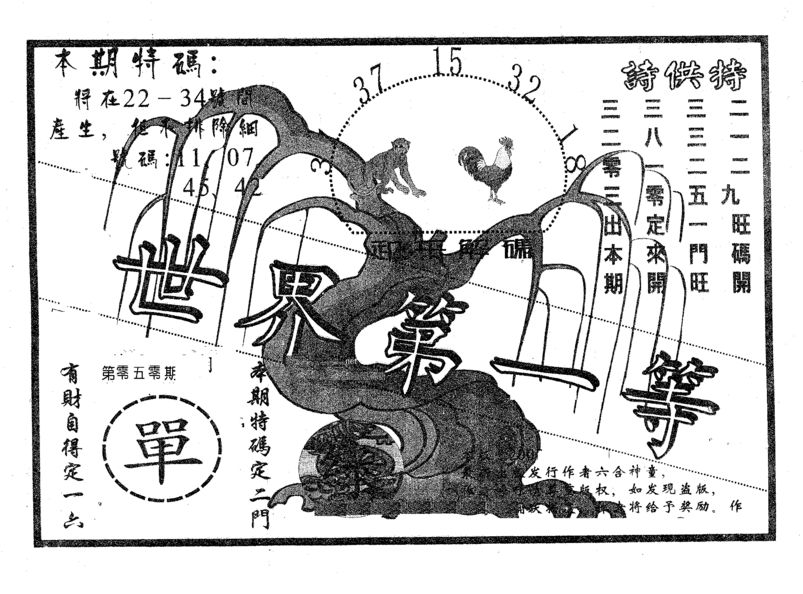 本期特碼：
將在22－34號間
產生，但不排除細
號碼:11、07、
45、42
37
15
32
18
詩供特
二一二九旺碼開
三三二五一門旺
三八一零定來開
三二零三出本期
解碼
世界第一等
有財自得定一六
第零五零期
單
本期特碼定二門
发行作者六合神童，
版权，如发现盗版，
将给予奖励。作